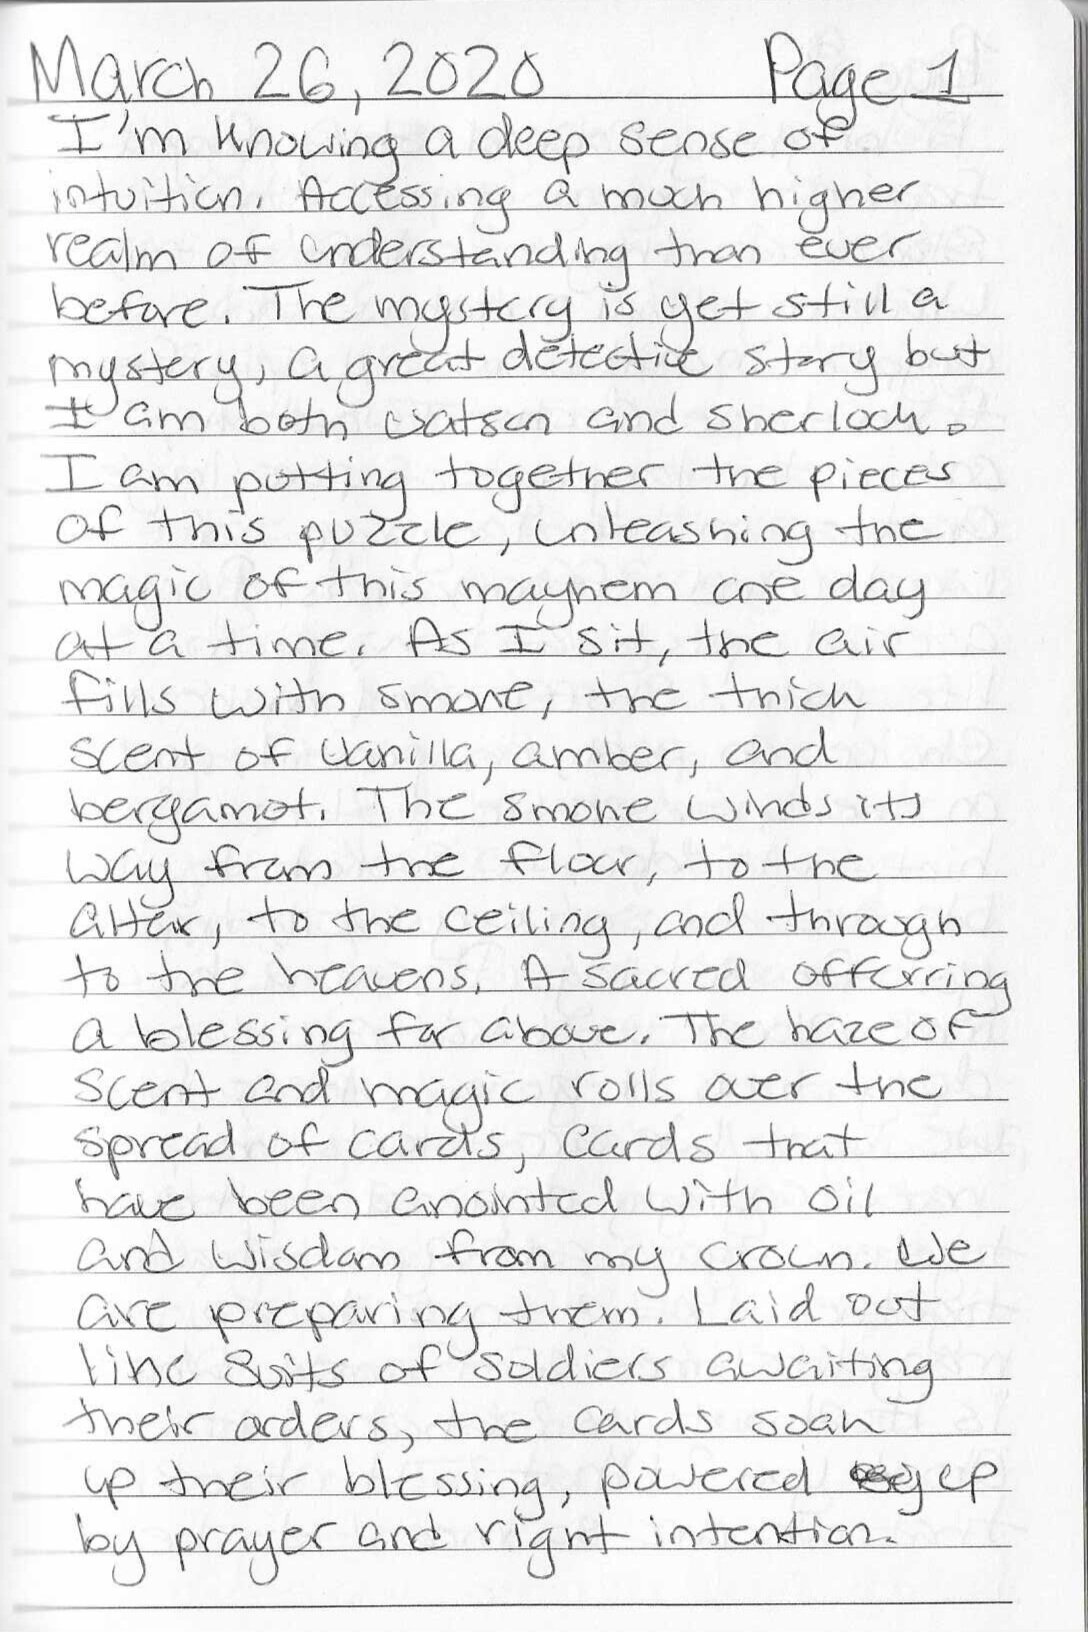 March 26, 2020 Page 1
I'm knowing a deep sense of
intuition. Accessing a much higher
realm of understanding than ever
before. The mystery is yet still a
mystery, a great detective story but
I am both Watson and Sherlock.
I am putting together the pieces
of this puzzle, unleashing the
magic of this mayhem one day
at a time. As I sit, the air
fills with smoke, the thick
scent of vanilla, amber, and
bergamot. The smoke winds its
way from the floor, to the
altar, to the ceiling, and through
to the heavens. A sacred offerring
a blessing for above. The haze of
scent and magic rolls over the
spread of cards, cards that
have been anointed with oil
and wisdom from my crown. We
are preparing them. Laid out
like suits of soldiers awaiting
their orders, the cards soak
up their blessing, powered up
by prayer and right intention.